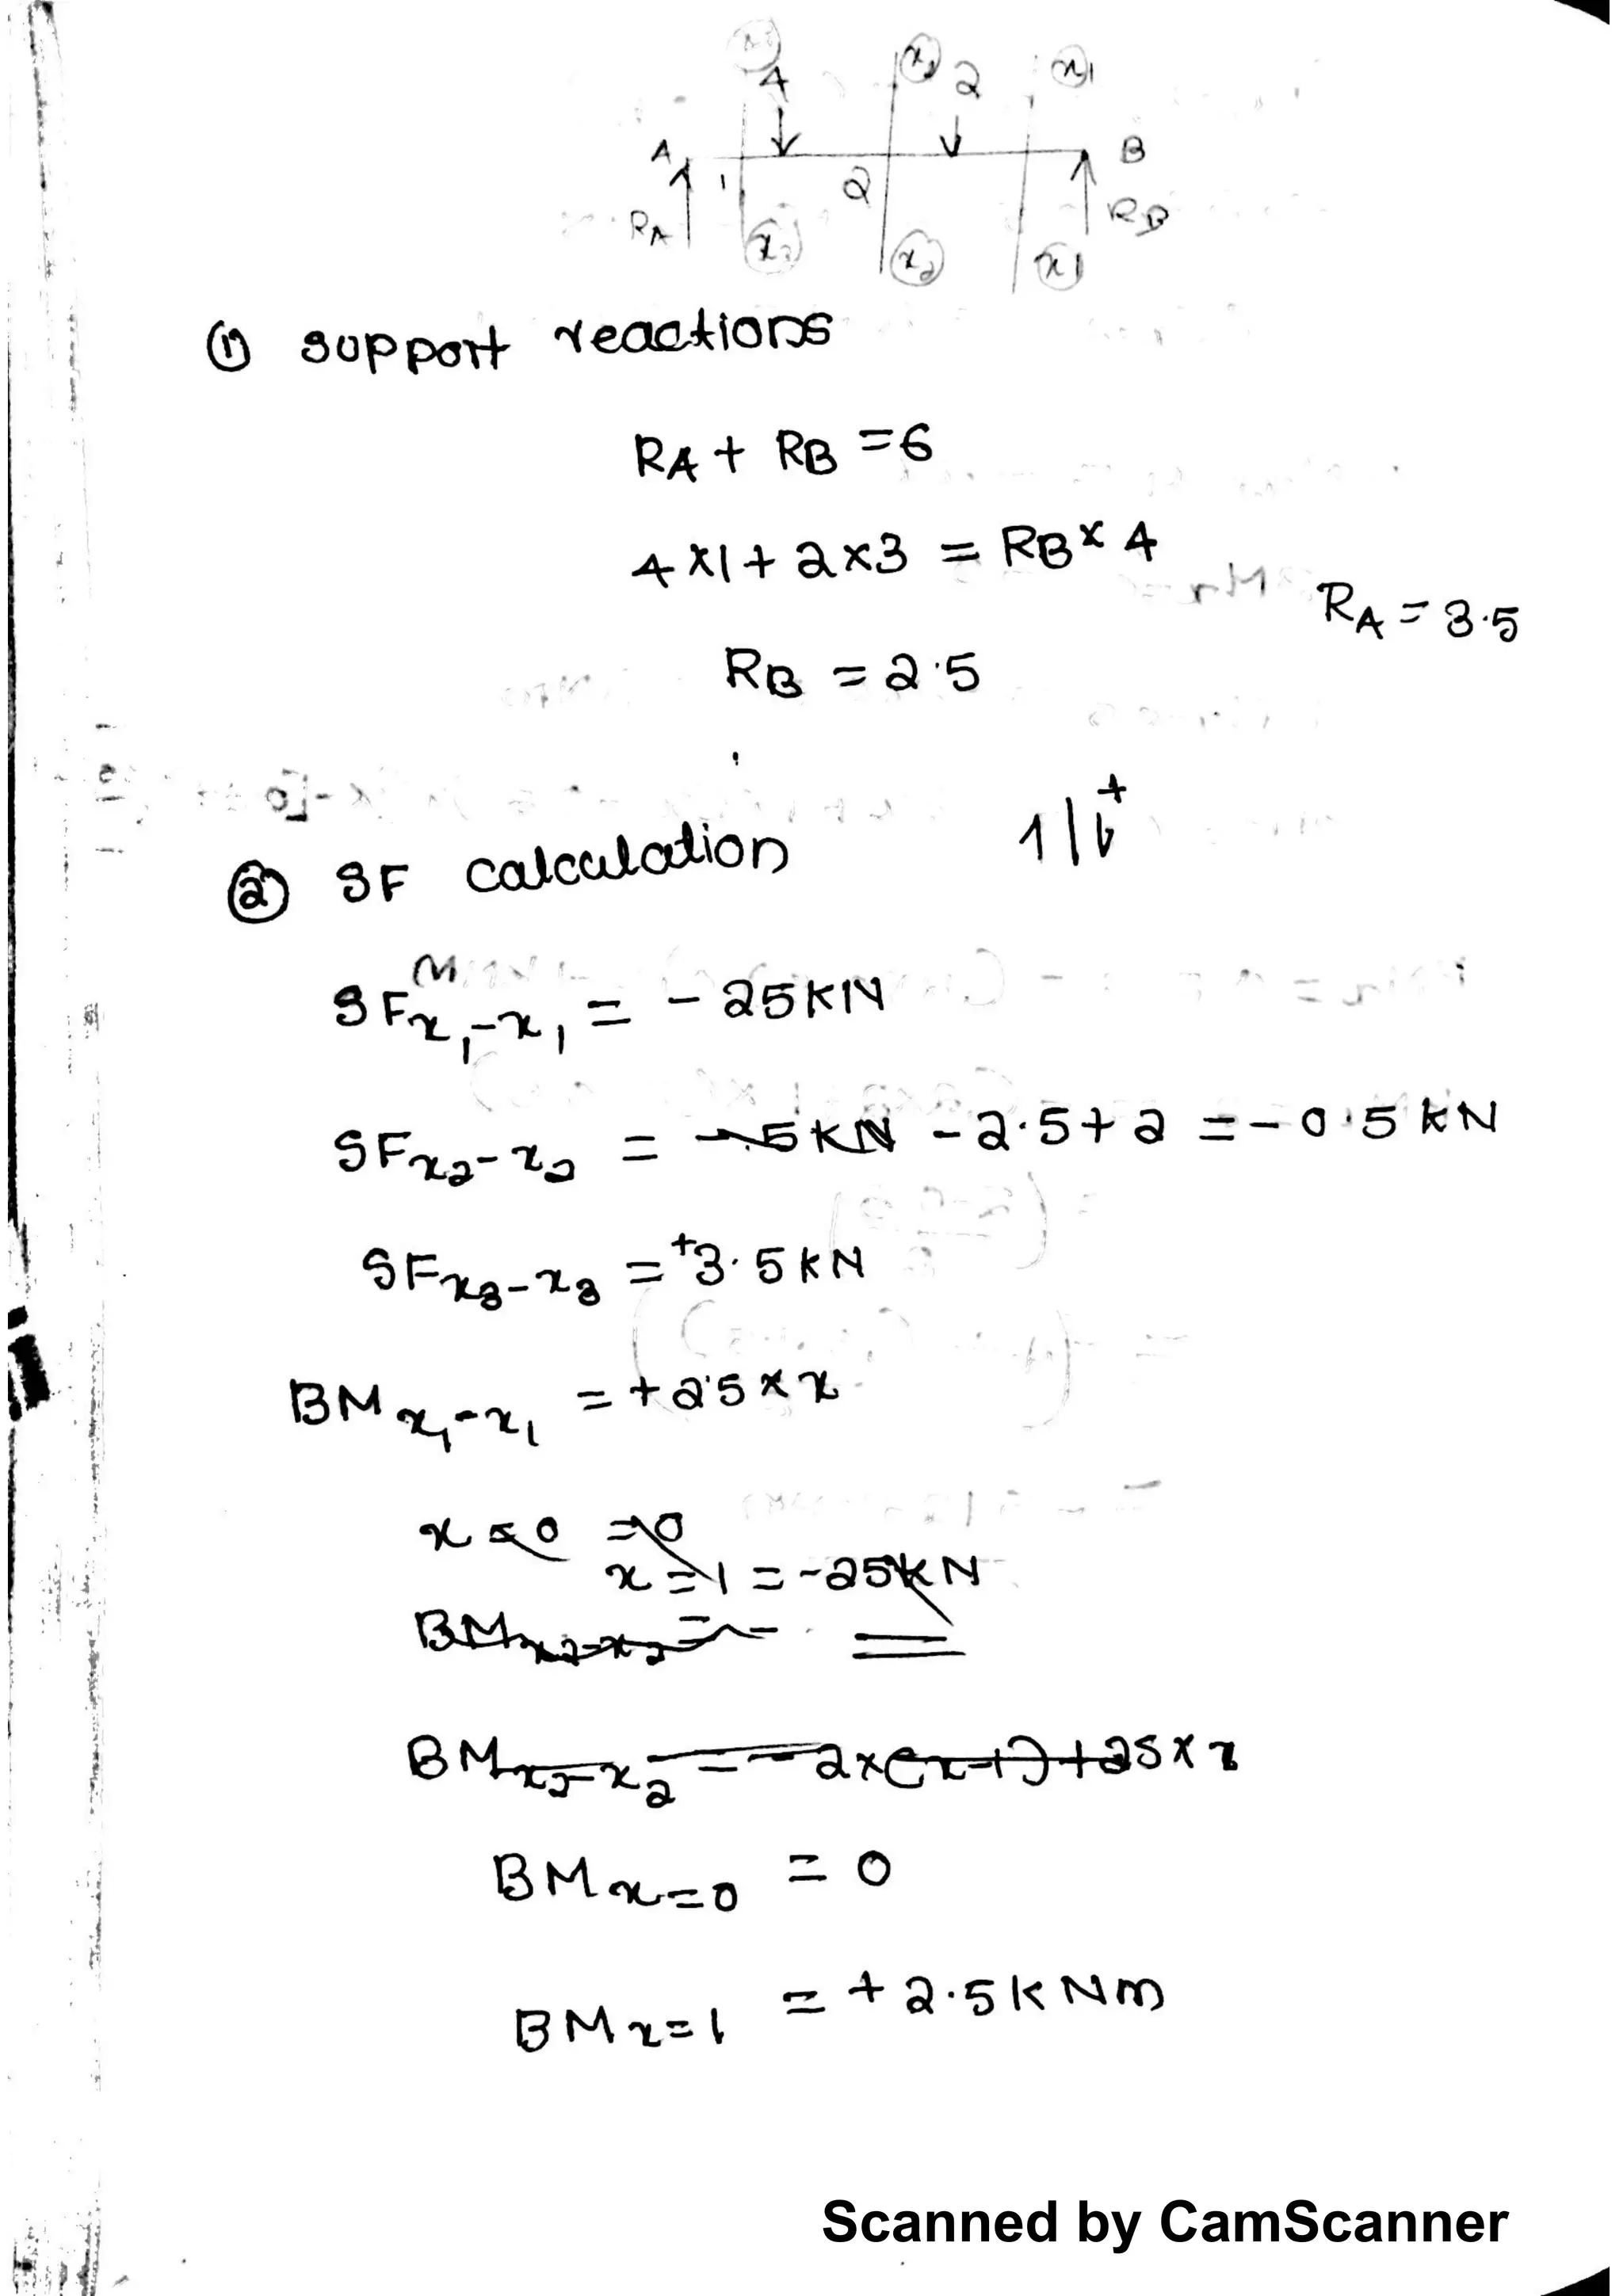 4 x2 2 x1
A B
1 2
RA RB
x3 x2 x1
① support reactions
RA + RB = 6
4×1 + 2×3 = RB × 4
RA = 3.5
RB = 2.5
② SF calculation 1|b+
SFx1-x1 = - 25KN
SFx2-x2 = - .5KN - 2.5+2 = - 0.5 KN
SFx3-x3 = +3.5KN
BM x1-x1 = + 2.5 × x
x = 0 = 0
x = 1 = -25KN
BMx2-x2 = -
BMx2-x2 = - 2×(x-1) + 25 × x
BM x=0 = 0
BM x=1 = + 2.5 K Nm
Scanned by CamScanner